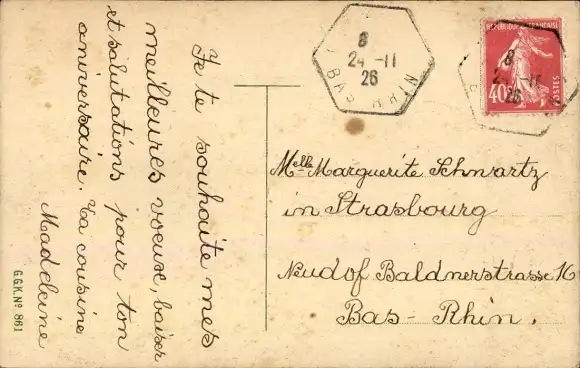 Je te souhaite mes
meilleures voeux, baiser
et salutations pour ton
aniversaire. Ta cousine
Madeleine
G.G.K. Nº 861
8
24-11
26
BAS RHIN
REPUBLIQUE FRANÇAISE
40
POSTES
8
26
Melle Marguerite Schwartz
in Strasbourg
Neudof Baldnerstrasse 16
Bas-Rhin.